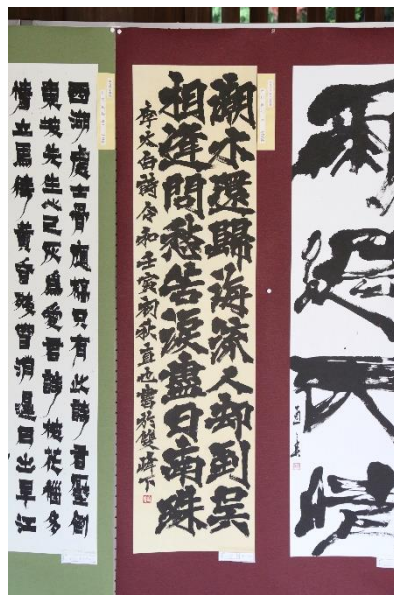 民情
潮水還歸海流人却到吳
相逢問愁苦淚盡日南珠
李太白詩令和壬寅初秋直也書於雙峰下
西湖處士骨應槁只有此詩君壓倒
東坡先生心已灰為愛君詩被花惱多
情立馬待黃昏殘雪消遲月出早江